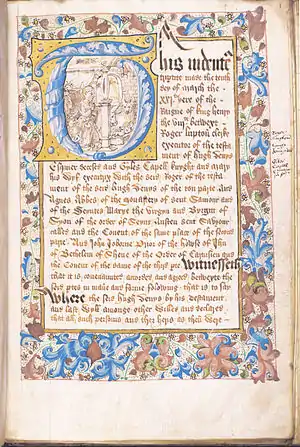 This indente
tripartite made the tenth
day of marche the
XXj yere of the
Raigne of king henry
the viij betwext
Roger lupton clerke
executor of the testa
ment of Hugh Denys
Esquier decessed and Gyles Capell knyght and mary
his wyf executrix with the seid Roger of the testa
ment of the seid Hugh Denys of the oon partie And
Agnes Abbes of the monastery of Sent Saviour and
of the Seintes Marye the virgyn and Byrgitt of
Syon of the order of Seint Austen Sent Saviour
called and the Covent of the same place of the secound
partie And John Joborne Prior of the howse of Jhu
of Bethelem of Shene of the Order of Cartusien and
the Covent of the same of the thyrd partie Witnesseth
that it is covenaunted aggreed betwext the
seid parties in maner and fourme folowing that is to say
Where the seid Hugh Denys by his testament
and last wyll amonge other willed and declared
that all such persouns and ther heyrs as then were